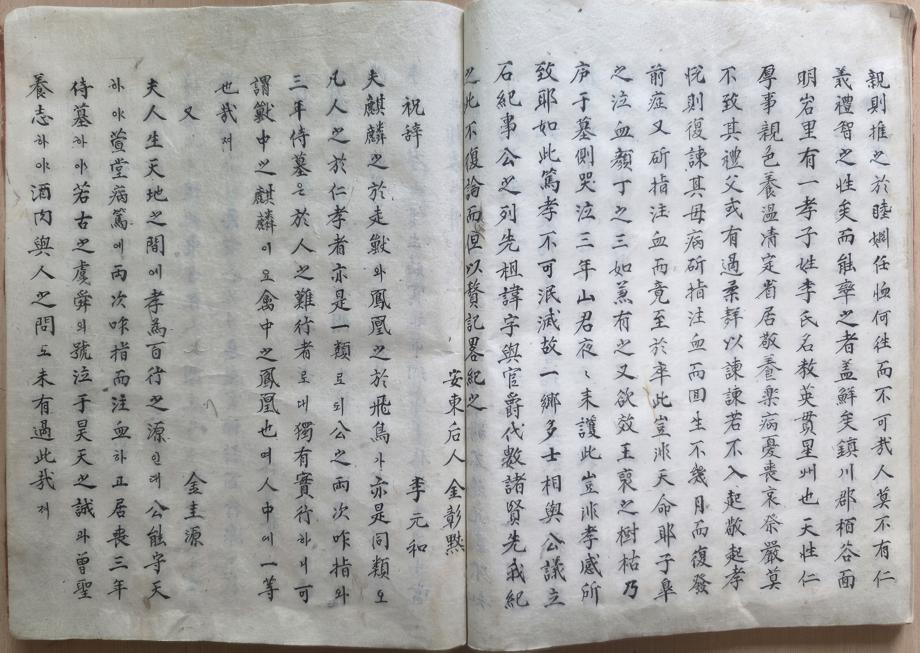 親則推之於睦婣任恤何徃而不可哉人莫不有仁
義禮智之性矣而能率之者盖鮮矣鎮川郡栢谷面
明岩里有一孝子姓李氏名教英貫星州也天性仁
厚事親色養溫凊定省居敬養樂病憂喪哀祭嚴莫
不致其禮父或有過柔聲以諫諫若不入起敬起孝
悅則復諫其母病斫指注血而回生不幾月而復發
前症又斫指注血而竟至於卒此豈非天命耶子皐
之泣血顔丁之三如蒸有之又欲效王裒之樹枯乃
庐于墓側哭泣三年山君夜〻来護此豈非孝感所
致耶如此篤孝不可泯滅故一鄉多士相與公議立
石紀事公之列先祖諱字與官爵代数諸賢先我紀
之此不復論而但以贅記畧紀之
安東后人 金彰黙
祝辞 李元和
夫麒麟之於走獸와鳳凰之於飛鳥가亦是同類오
凡人之於仁孝者亦是一類료되公之兩次咋指와
三年侍墓은於人之難行者로대獨有實行하니可
謂獸中之麒麟이요禽中之鳳凰也며人中에一等
也哉저
又 金圭源
夫人生天地之間에孝爲百行之源인대公能守天
하야萱堂病篤에両次咋指而注血하고居喪三年
侍墓하야若古之虞舜의號泣于昊天之誠과曾聖
養志하야酒肉與人之問도未有過此哉저